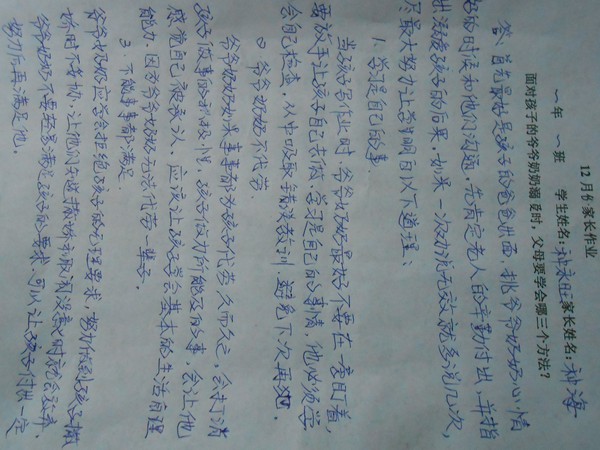 12月份家长作业
一年 一班 学生姓名: 家长姓名:
面对孩子的爷爷奶奶溺爱时,父母要学会哪三个方法?
答:首先最好是孩子的爸爸出面,挑爷爷奶奶心情
好的时候和他们沟通,先肯定老人的辛勤付出,并指
出溺爱孩子的后果,如果一次劝说无效就多说几次,
尽最大努力让爷爷明白以下道理:
1.学习是自己的事.
当孩子写作业时,爷爷奶奶最好不要在一旁盯着,
要放手让孩子自己去做,学习是自己的事情,他必须学
会自己检查,从中吸取教训,避免下次再犯.
②爷爷奶奶不代劳.
爷爷奶奶如果事事都为孩子代劳,久而久之,会打消
孩子做事的积极性,孩子做力所能及的事,会让他
感觉自己很承认,应该让孩子学会基本的生活自理
能力.因为爷爷奶奶无法代劳一辈子.
3.不能事事都满足.
爷爷奶奶应学会拒绝孩子的无理要求,努力做到孩子撒
娇时不妥协,让他们知道撒娇和取闹没意义时就会放弃.
爷爷奶奶不要轻易满足孩子的要求,可以让孩子付出一定
努力后再满足他.